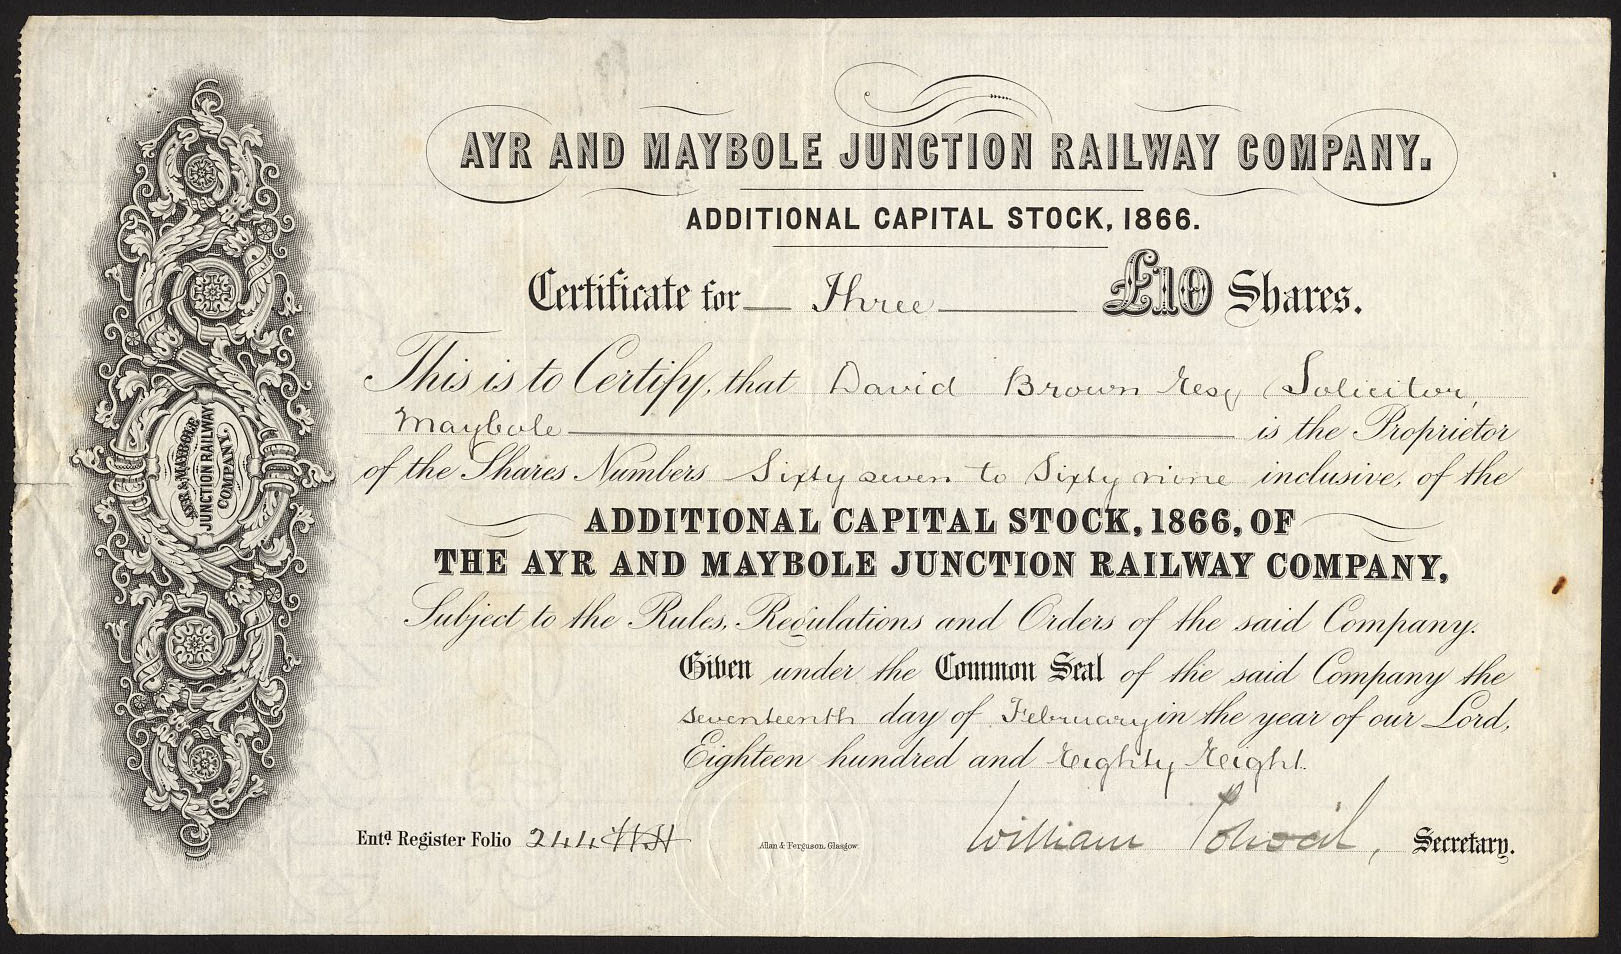 AYR AND MAYBOLE JUNCTION RAILWAY COMPANY.
ADDITIONAL CAPITAL STOCK, 1866.
Certificate for Three £10 Shares.
This is to Certify, that David Brown Esq Solicitor,
Maybole is the Proprietor
of the Shares Numbers Sixty seven to Sixty nine inclusive, of the
ADDITIONAL CAPITAL STOCK, 1866, OF
THE AYR AND MAYBOLE JUNCTION RAILWAY COMPANY,
Subject to the Rules, Regulations and Orders of the said Company.
Given under the Common Seal of the said Company the
seventeenth day of February in the year of our Lord,
Eighteen hundred and Eighty Eight.
Entd. Register Folio 244
Allan & Ferguson, Glasgow
William , Secretary.
AYR & MAYBOLE
JUNCTION RAILWAY
COMPANY.